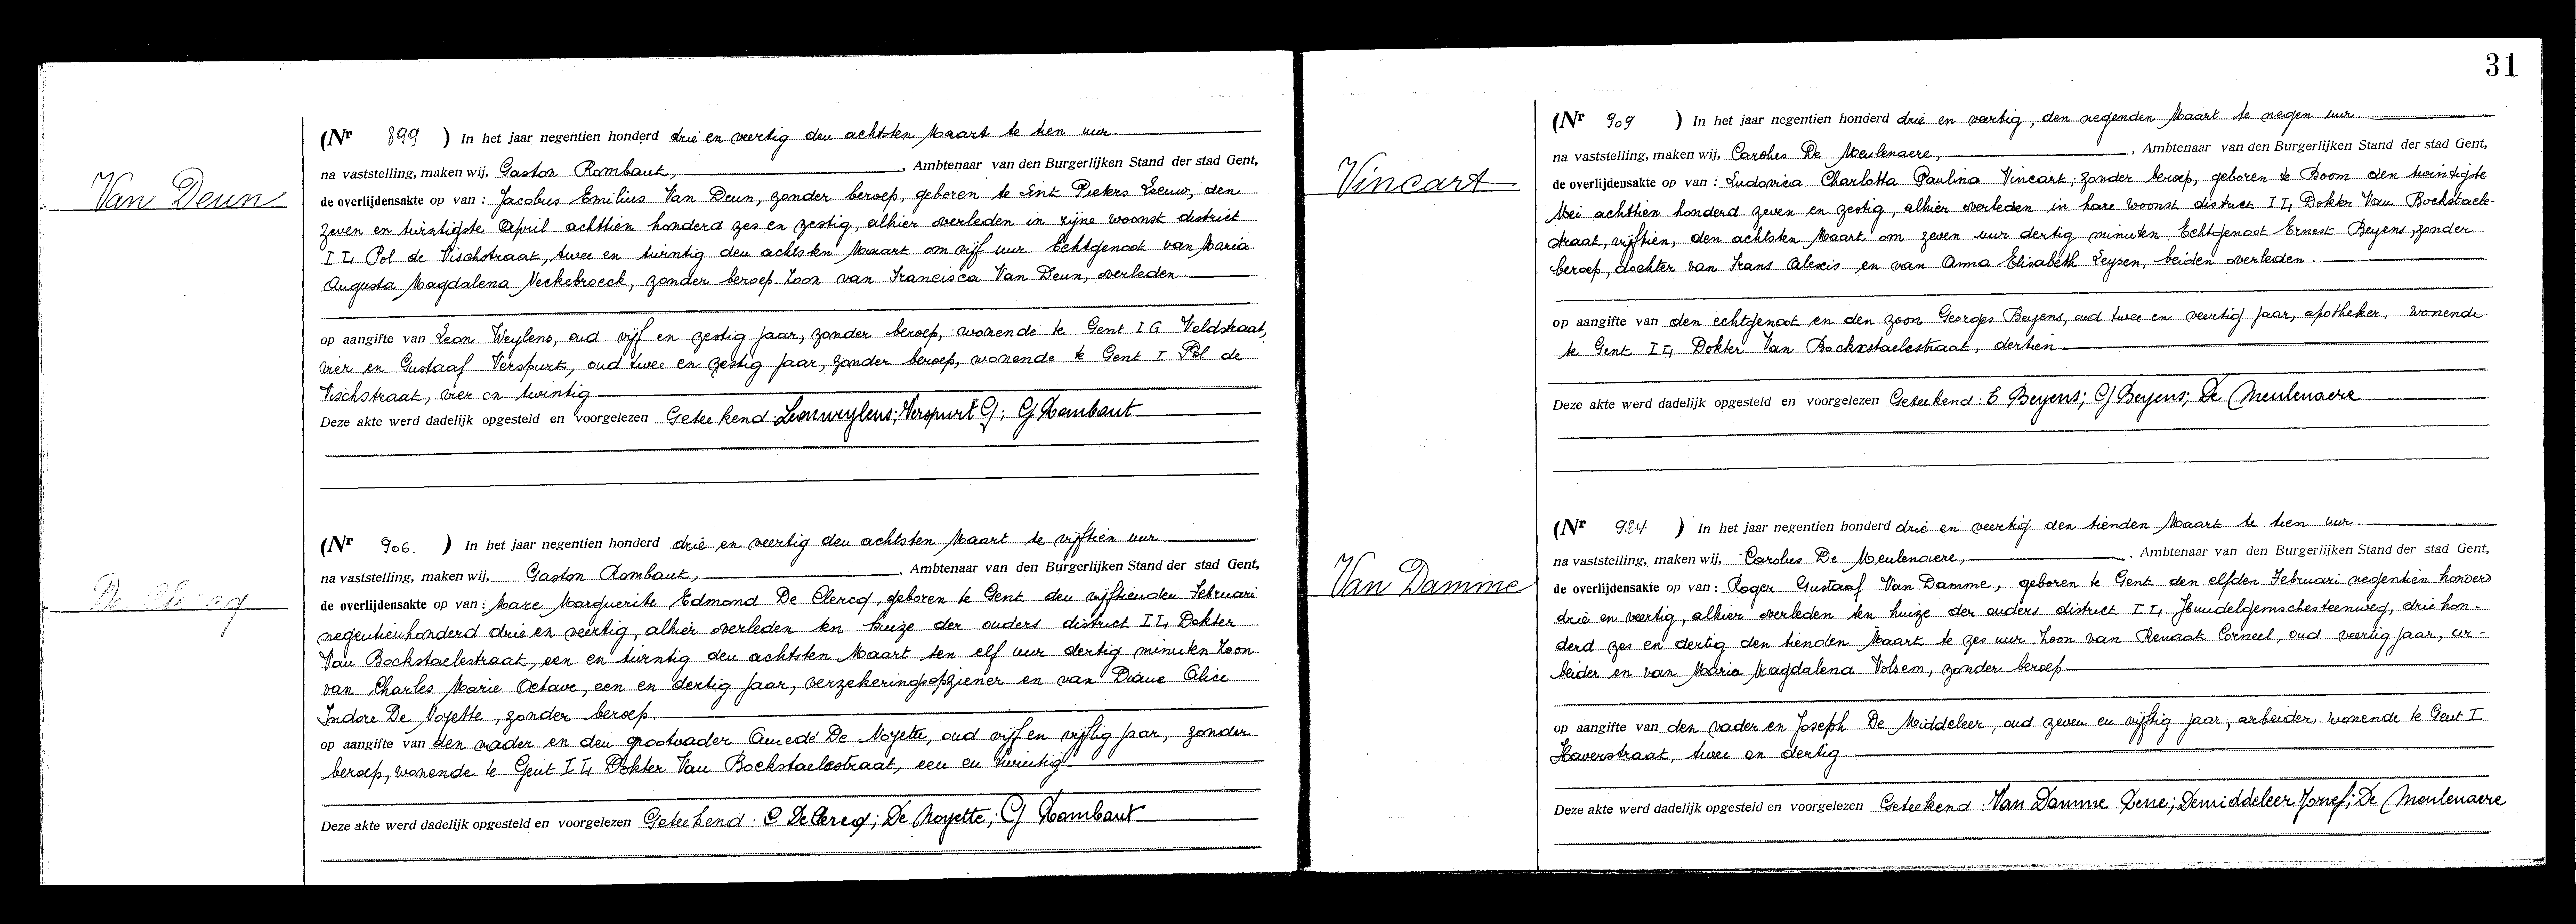 Van Deun
(Nr 899 ) In het jaar negentien honderd drie en veertig den achtsten Maart te tien uur.
na vaststelling, maken wij, Gaston Rombaut, , Ambtenaar van den Burgerlijken Stand der stad Gent,
de overlijdensakte op van : Jacobus Emilius Van Deun, zonder beroep, geboren te Sint Pieters Leeuw, den
zeven en twintigste April achttien honderd zes en zestig, alhier overleden in zijne woonst district
I I, Pol de Vischstraat, twee en twintig den achtsten Maart om vijf uur Echtgenoot van Maria
Augusta Magdalena Neckebroeck, zonder beroep. Zoon van Francisca Van Deun, overleden.
op aangifte van Leon Weylens, oud vijf en zestig jaar, zonder beroep, wonende te Gent I G Veldstraat,
vier en Gustaaf Verspurt, oud twee en zestig jaar, zonder beroep, wonende te Gent I Pol de
Vischstraat, vier en twintig
Deze akte werd dadelijk opgesteld en voorgelezen Geteekend: Leonweylens; Verspurt G; G Rombaut
De Clercq
(Nr 906. ) In het jaar negentien honderd drie en veertig den achtsten Maart te vijftien uur
na vaststelling, maken wij, Gaston Rombaut, , Ambtenaar van den Burgerlijken Stand der stad Gent,
de overlijdensakte op van : Marc Marguerite Edmond De Clercq, geboren te Gent den vijftienden Februari
negentienhonderd drie en veertig, alhier overleden ten huize der ouders district I I, Dokter
Van Bockstaelestraat, een en twintig den achtsten Maart ten elf uur dertig minuten Zoon
van Charles Marie Octave, een en dertig jaar, verzekeringsopziener en van Diane Alice
Indore De Noyette, zonder beroep.
op aangifte van den vader en den grootvader Amedé De Noyette, oud vijf en vijftig jaar, zonder
beroep, wonende te Gent I I, Dokter Van Bockstaelestraat, een en twintig
Deze akte werd dadelijk opgesteld en voorgelezen Geteekend: C De Clercq; De Noyette; G Rombaut
31
Vincart
(Nr 909 ) In het jaar negentien honderd drie en veertig, den negenden Maart te negen uur
na vaststelling, maken wij, Carolus De Meulenaere, , Ambtenaar van den Burgerlijken Stand der stad Gent,
de overlijdensakte op van : Ludovica Charlotta Paulina Vincart; zonder beroep, geboren te Boom den twintigste
Mei achttien honderd zeven en zestig, alhier overleden in hare woonst district I I, Dokter Van Bockstaele-
straat, vijftien, den achtsten Maart om zeven uur dertig minuten. Echtgenoot Ernest Beyens, zonder
beroep, dochter van Frans Alexis en van Anna Elisabeth Leysen, beiden overleden.
op aangifte van den echtgenoot en den zoon Georges Beyens, oud twee en veertig jaar, apotheker, wonende
te Gent I I, Dokter Van Bockxstaelestraat, dertien
Deze akte werd dadelijk opgesteld en voorgelezen Geteekend: E Beyens; G Beyens; De Meulenaere
Van Damme
(Nr 924 ) In het jaar negentien honderd drie en veertig den tienden Maart te tien uur.
na vaststelling, maken wij, Carolus De Meulenaere, , Ambtenaar van den Burgerlijken Stand der stad Gent,
de overlijdensakte op van : Roger Gustaaf Van Damme, geboren te Gent den elfden Februari negentien honderd
drie en veertig, alhier overleden ten huize der ouders district I I, Hundelgemschesteenweg, drie hon-
derd zes en dertig den tienden Maart te zes uur Zoon van Renaat Corneel, oud veertig jaar, ar-
beider en van Maria Magdalena Volsem, zonder beroep
op aangifte van den vader en Joseph De Middeleer, oud zeven en vijftig jaar, arbeider, wonende te Gent I
Haverstraat, twee en dertig
Deze akte werd dadelijk opgesteld en voorgelezen Geteekend: Van Damme Rene; Demiddeleer Josef; De Meulenaere